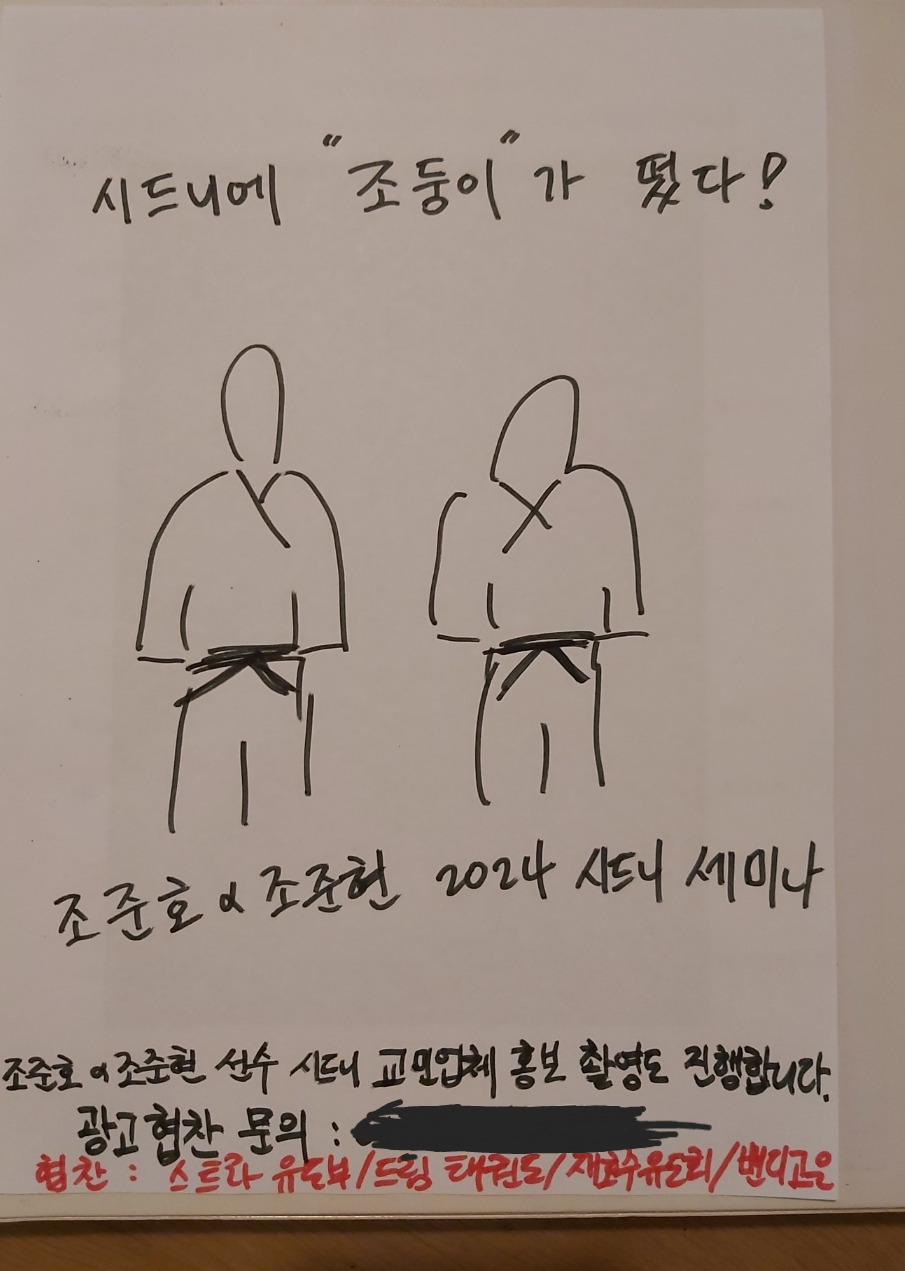 시드니에 "조둥이"가 떴다!
조준호 & 조준현 2024 시드니 세미나
조준호 & 조준현 선수 시드니 교민업체 홍보 촬영도 진행합니다.
광고협찬 문의 :
협찬 : 스트라 유도부/드림 태권도/재호수유도회/밴디고은